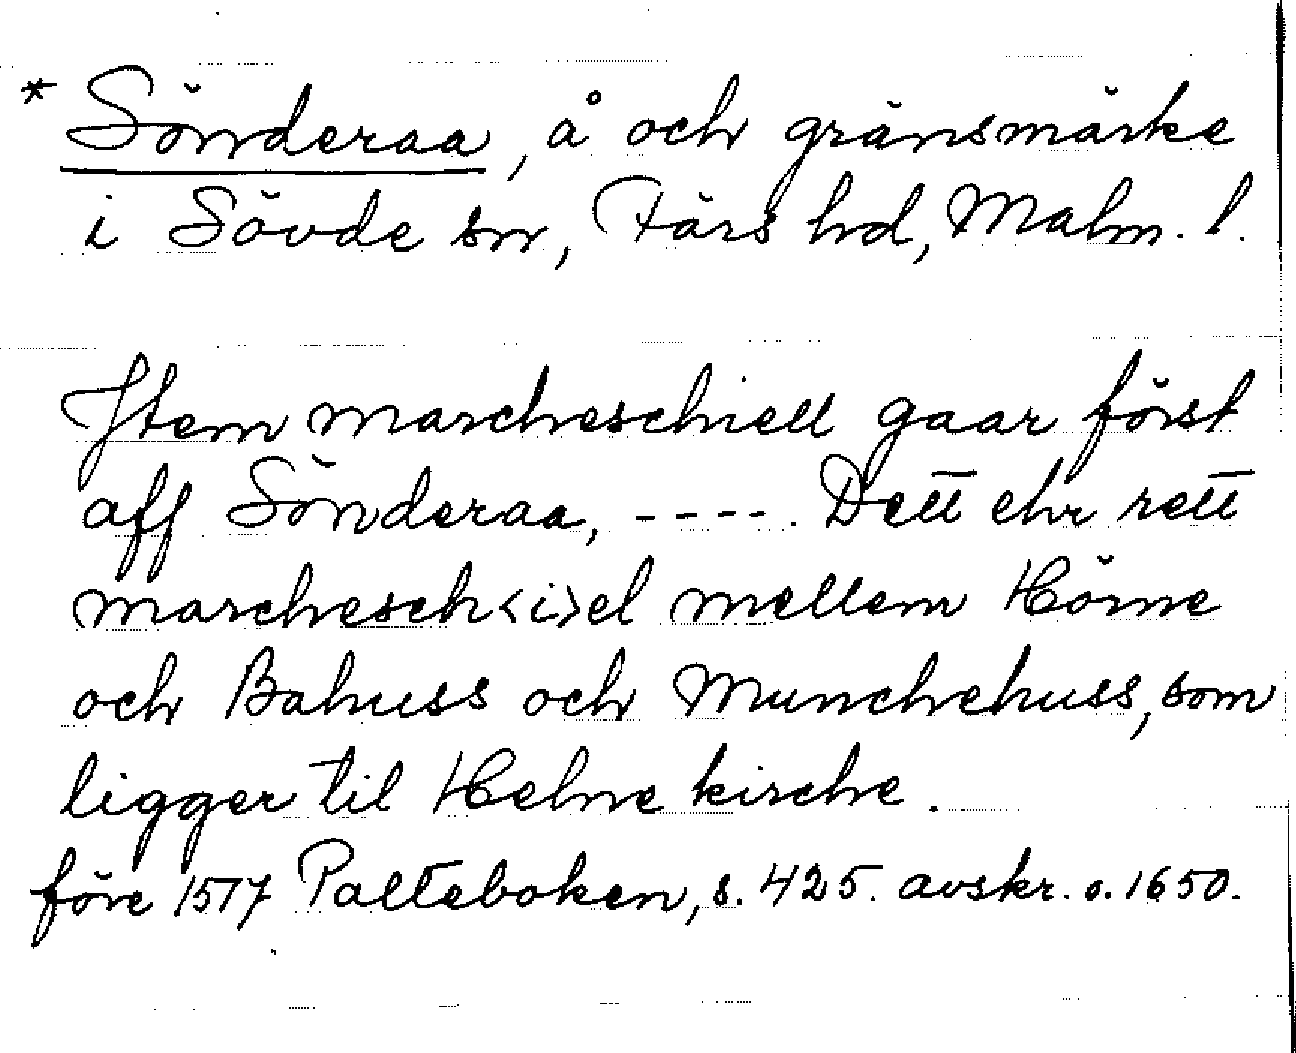 * Sönderaa, å och gränsmärke
i Sövde sn, Färs hd, Malm. l.
Jtem marcheschiell gaar först
aff Sönderaa, ----. Dett ehr rett
marchesch<i>el mellem Hörne
och Bahuss och Munchehuss, som
ligger til Helne kirche.
före 1517 Palteboken, s. 425. avskr. o. 1650.